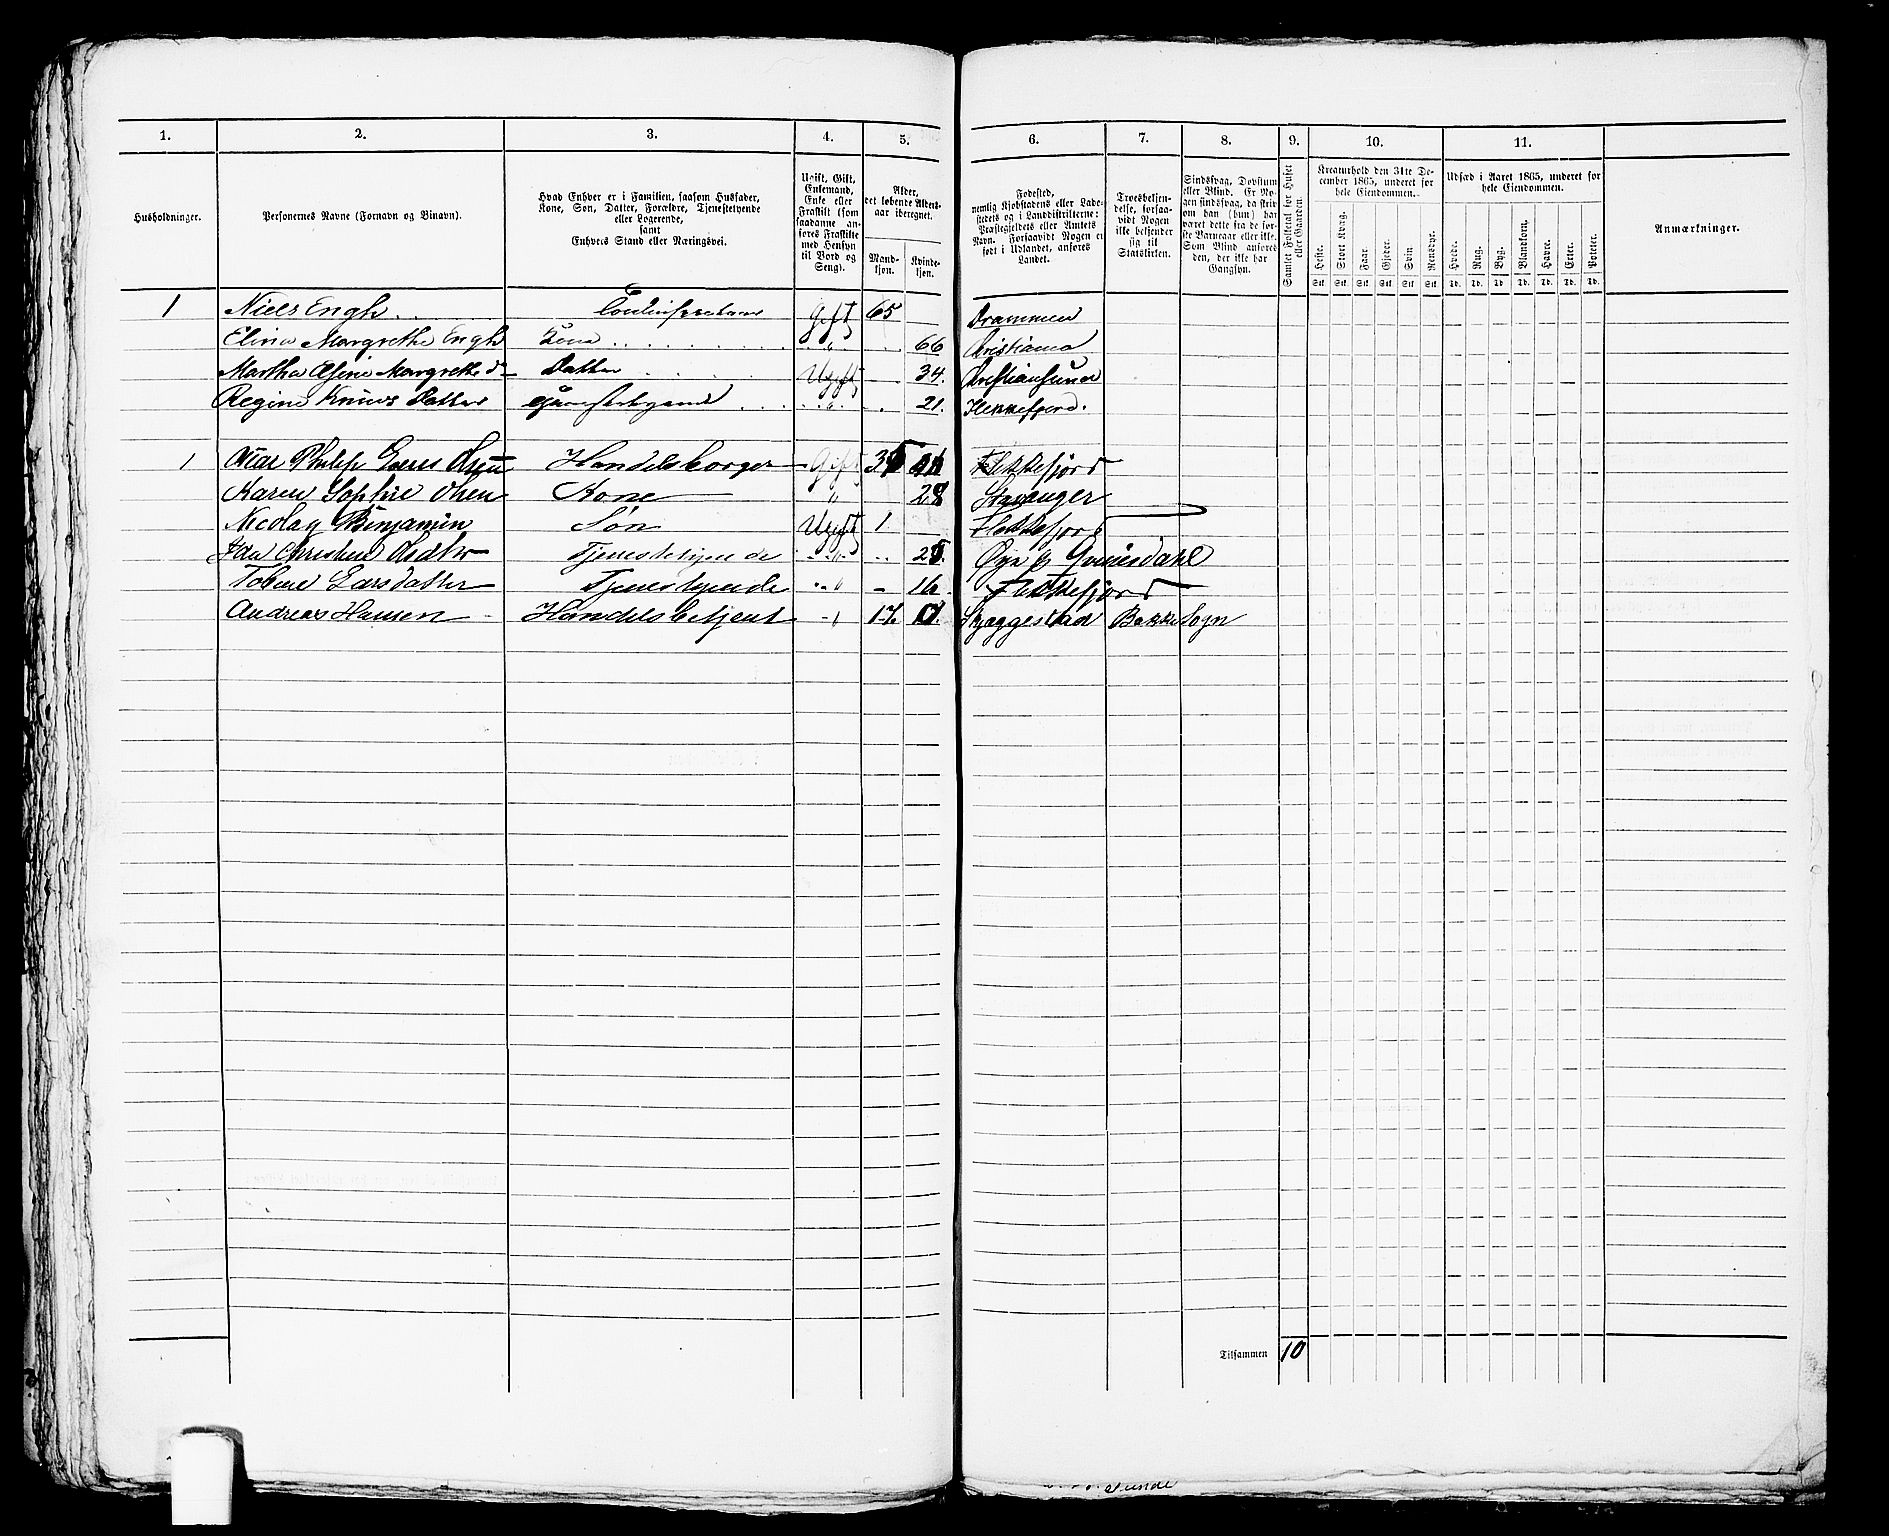 1. 2. 3. 4. 5. 6. 7. 8. 9. 10. 11.
Husholdninger.
Personernes Navne (Fornavn og Binavn).
Hvad Enhver er i Familien, saasom Husfader,
Kone, Søn, Datter, Forældre, Tjenestetyende
eller Logerende,
samt
Enhvers Stand eller Næringsvei.
Ugift, Gift,
Enkemand,
Enke eller
Fraskilt (som
saadanne an-
føres Fraskilte
med Hensyn
til Bord og
Seng).
Alder,
det løbende Alders-
aar iberegnet.
Mand-
kjøn.
Kvinde-
kjøn.
Fødested,
nemlig Kjøbstadens eller Lade-
stedets og i Landdistrikterne:
Præstegjeldets eller Amtets
Navn. Forsaavidt Nogen er
født i Udlandet, anføres
Landet.
Troesbekjen-
delse, forsaa-
vidt Nogen
ikke bekjender
sig til
Statskirken.
Sindssvag, Døvstum
eller Blind. Er No-
gen sindssvag, da skriv
om han (hun) har
været dette fra de før-
ste Barneaar eller ikke.
Som Blind anføres
den, der ikke har
Gangsyn.
Samlet Folketal for Huset
eller Gaarden.
Kreaturhold den 31te De-
cember 1865, underet for
hele Eiendommen.
Heste.
Stort Kvæg.
Faar.
Gjeder.
Svin.
Rensdyr.
Stk. Stk. Stk. Stk. Stk. Stk.
Udsæd i Aaret 1865, underet for
hele Eiendommen.
Hvede.
Rug.
Byg.
Blandkorn.
Havre.
Erter.
Poteter.
Td. Td. Td. Td. Td. Td. Td.
Anmærkninger.
1 Niels Engh Gift 65 Drammen
Margrethe Engh Kone " 66 Christiania
Martha Margrethe Datter Ugift 34. Christiansund
Regine Datter " 21. Flekkefjord.
1 Philip Handelsborger Gift Flekkefjord
Karen Sophie Olsen Kone " 28 Stavanger
Nicolay Benjamin Søn Ugift 1 Flekkefjord
Ida Tjenestetyende " Qvinesdahl
Larsdatter Tjenestetyende " 16 Flekkefjord
Andreas Hansen Handelsbetjent " 17 Skjeggestad Bakke Sogn
Tilsammen 10